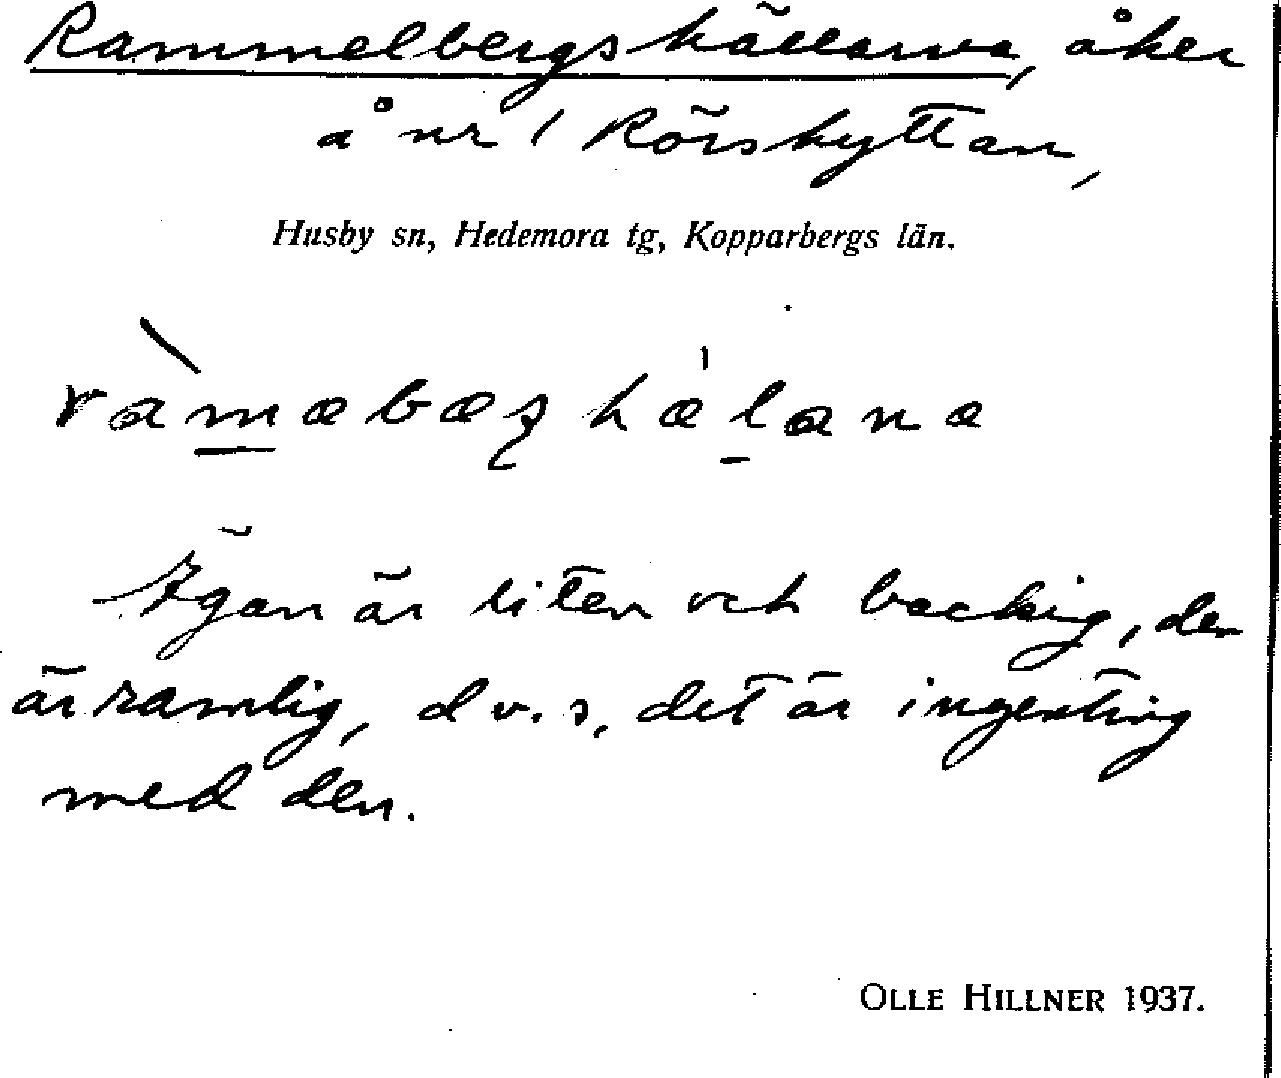 Rammelbergskällarna, åker
å nr 1 Rörshyttan,
Husby sn, Hedemora tg, Kopparbergs län.
Ägan är liten och backig, den
är ramlig, d v. s, det är ingenting
med den.
OLLE HILLNER 1937.